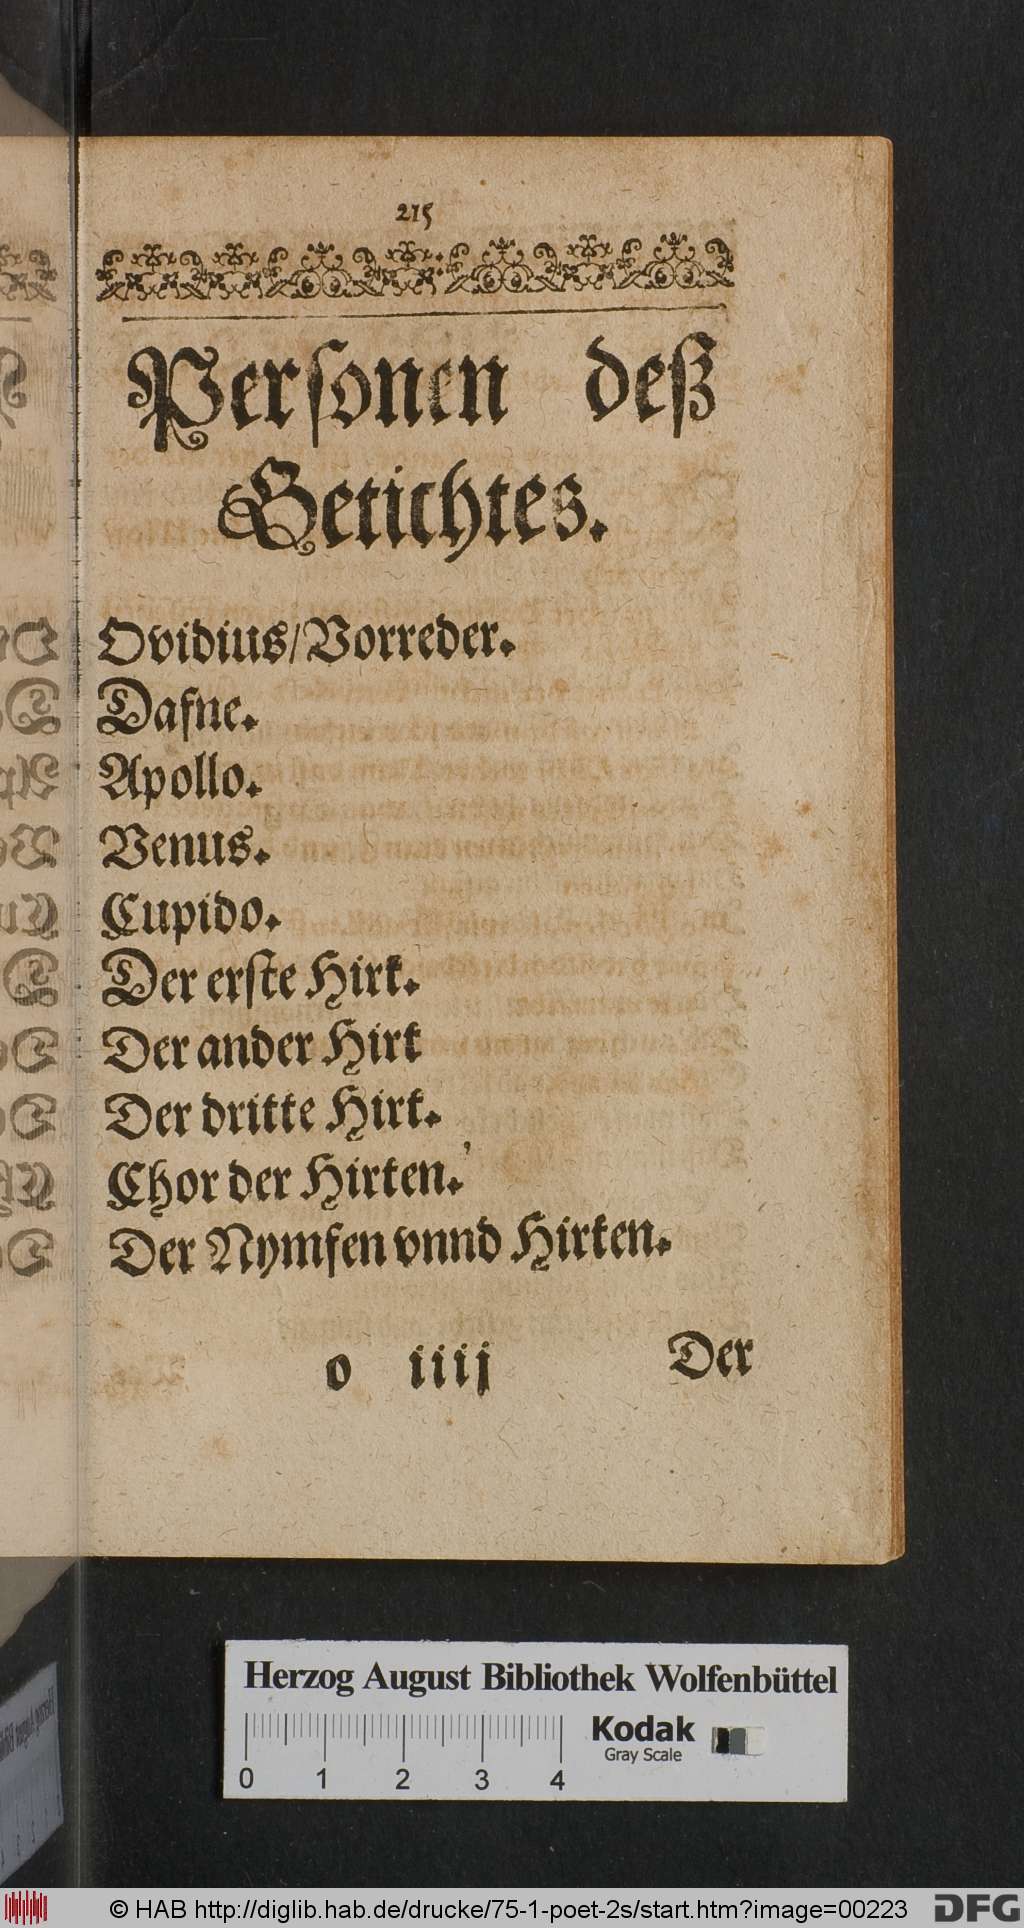 215
Personen deß
Getichtes.
Ovidius/Vorreder.
Dafne.
Apollo.
Venus.
Cupido.
Der erste Hirt.
Der ander Hirt
Der dritte Hirt.
Chor der Hirten.
Der Nymfen vnnd Hirten.
o iiij Der
Herzog August Bibliothek Wolfenbüttel
Kodak
Gray Scale
0 1 2 3 4
© HAB http://diglib.hab.de/drucke/75-1-poet-2s/start.htm?image=00223
DFG